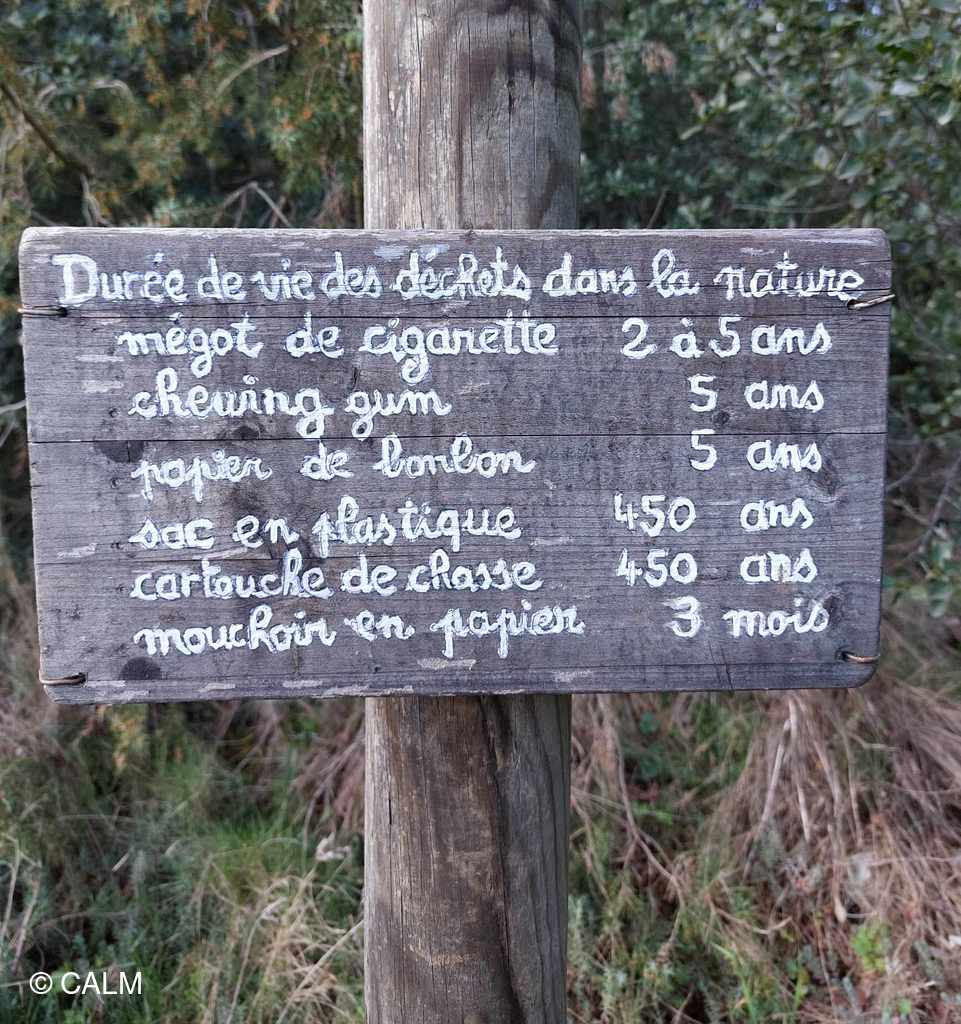 Durée de vie des déchets dans la nature
mégot de cigarette 2 à 5 ans
chewing gum 5 ans
papier de bonbon 5 ans
sac en plastique 450 ans
cartouche de chasse 450 ans
mouchoir en papier 3 mois
© CALM